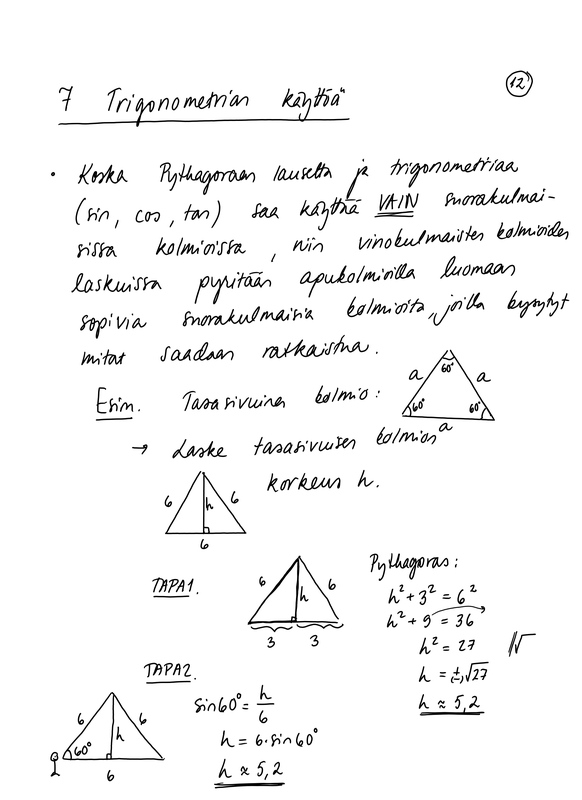 12
7 Trigonometrian käyttöä
• Koska Pythagoraan lausetta ja trigonometriaa
(sin, cos, tan) saa käyttää VAIN suorakulmai-
sissa kolmioissa, niin vinokulmaisten kolmioiden
laskuissa pyritään apukolmioilla luomaan
sopivia suorakulmaisia kolmioita, joilla kysytyt
mitat saadaan ratkaistua.
Esim. Tasasivuinen kolmio:
a 60° a
60° 60°
a
→ Laske tasasivuisen kolmion
korkeus h.
6 h 6
6
TAPA1.
6 h 6
3 3
Pythagoras:
h² + 3² = 6²
h² + 9 = 36
h² = 27 ||√
h = (±)√27
h ≈ 5,2
TAPA2.
6 h 6
60°
6
sin60° = h/6
h = 6·sin60°
h ≈ 5,2